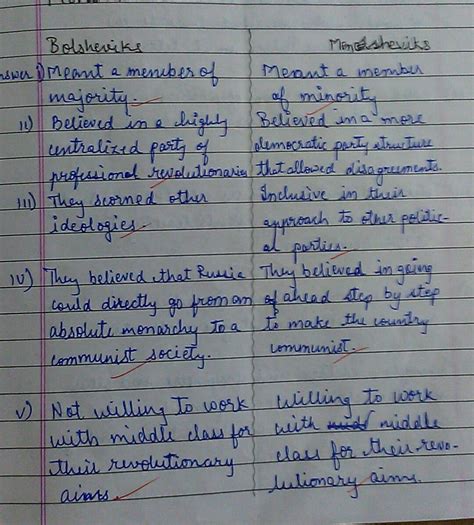 Bolsheviks Mensheviks
nswer i) Meant a member of Meant a member
majority. of minority
ii) Believed in a highly Believed in a more
centralized party of democratic party structure
professional revolutionaries that allowed disagreements.
iii) They scorned other Inclusive in their
ideologies. approach to other politic-
al parties.
iv) They believed that Russia They believed in going
could directly go from an of ahead step by step
absolute monarchy to a to make the country
communist society. communist.
v) Not willing to work willing to work
with middle class for with middle
their revolutionary class for their revo-
aims. lutionary aims.